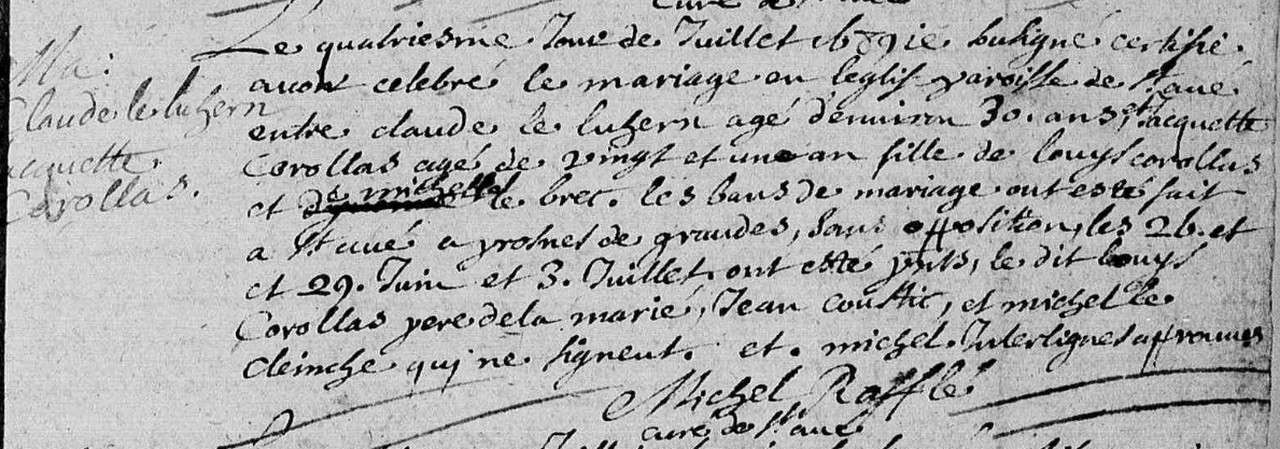 curé de St aué
Le quatriesme Jour de Juillet 1689 ie soubsigné certifie
Ma:
auoir celebré le mariage en l'eglise paroisse de St aué
Claude le luhern
entre claude le luhern agé d'enuiron 30. ans, et Jacquette
Jacquette
Corollas agé de vingt et un an fille de louys corollas
Corollas.
et de michelle le brec. les bans de mariage ont esté fait
a St aué a prosnes de grandes, sans opposition, les 26. et
et 29. Juin et 3. Juillet. ont esté pnts, le dit louys
Corollas pere de la marié, Jean coustic, et michel le
cleinche qui ne signent. et. michel. Interlignes approuués
Michel Rafflé
curé de St aué